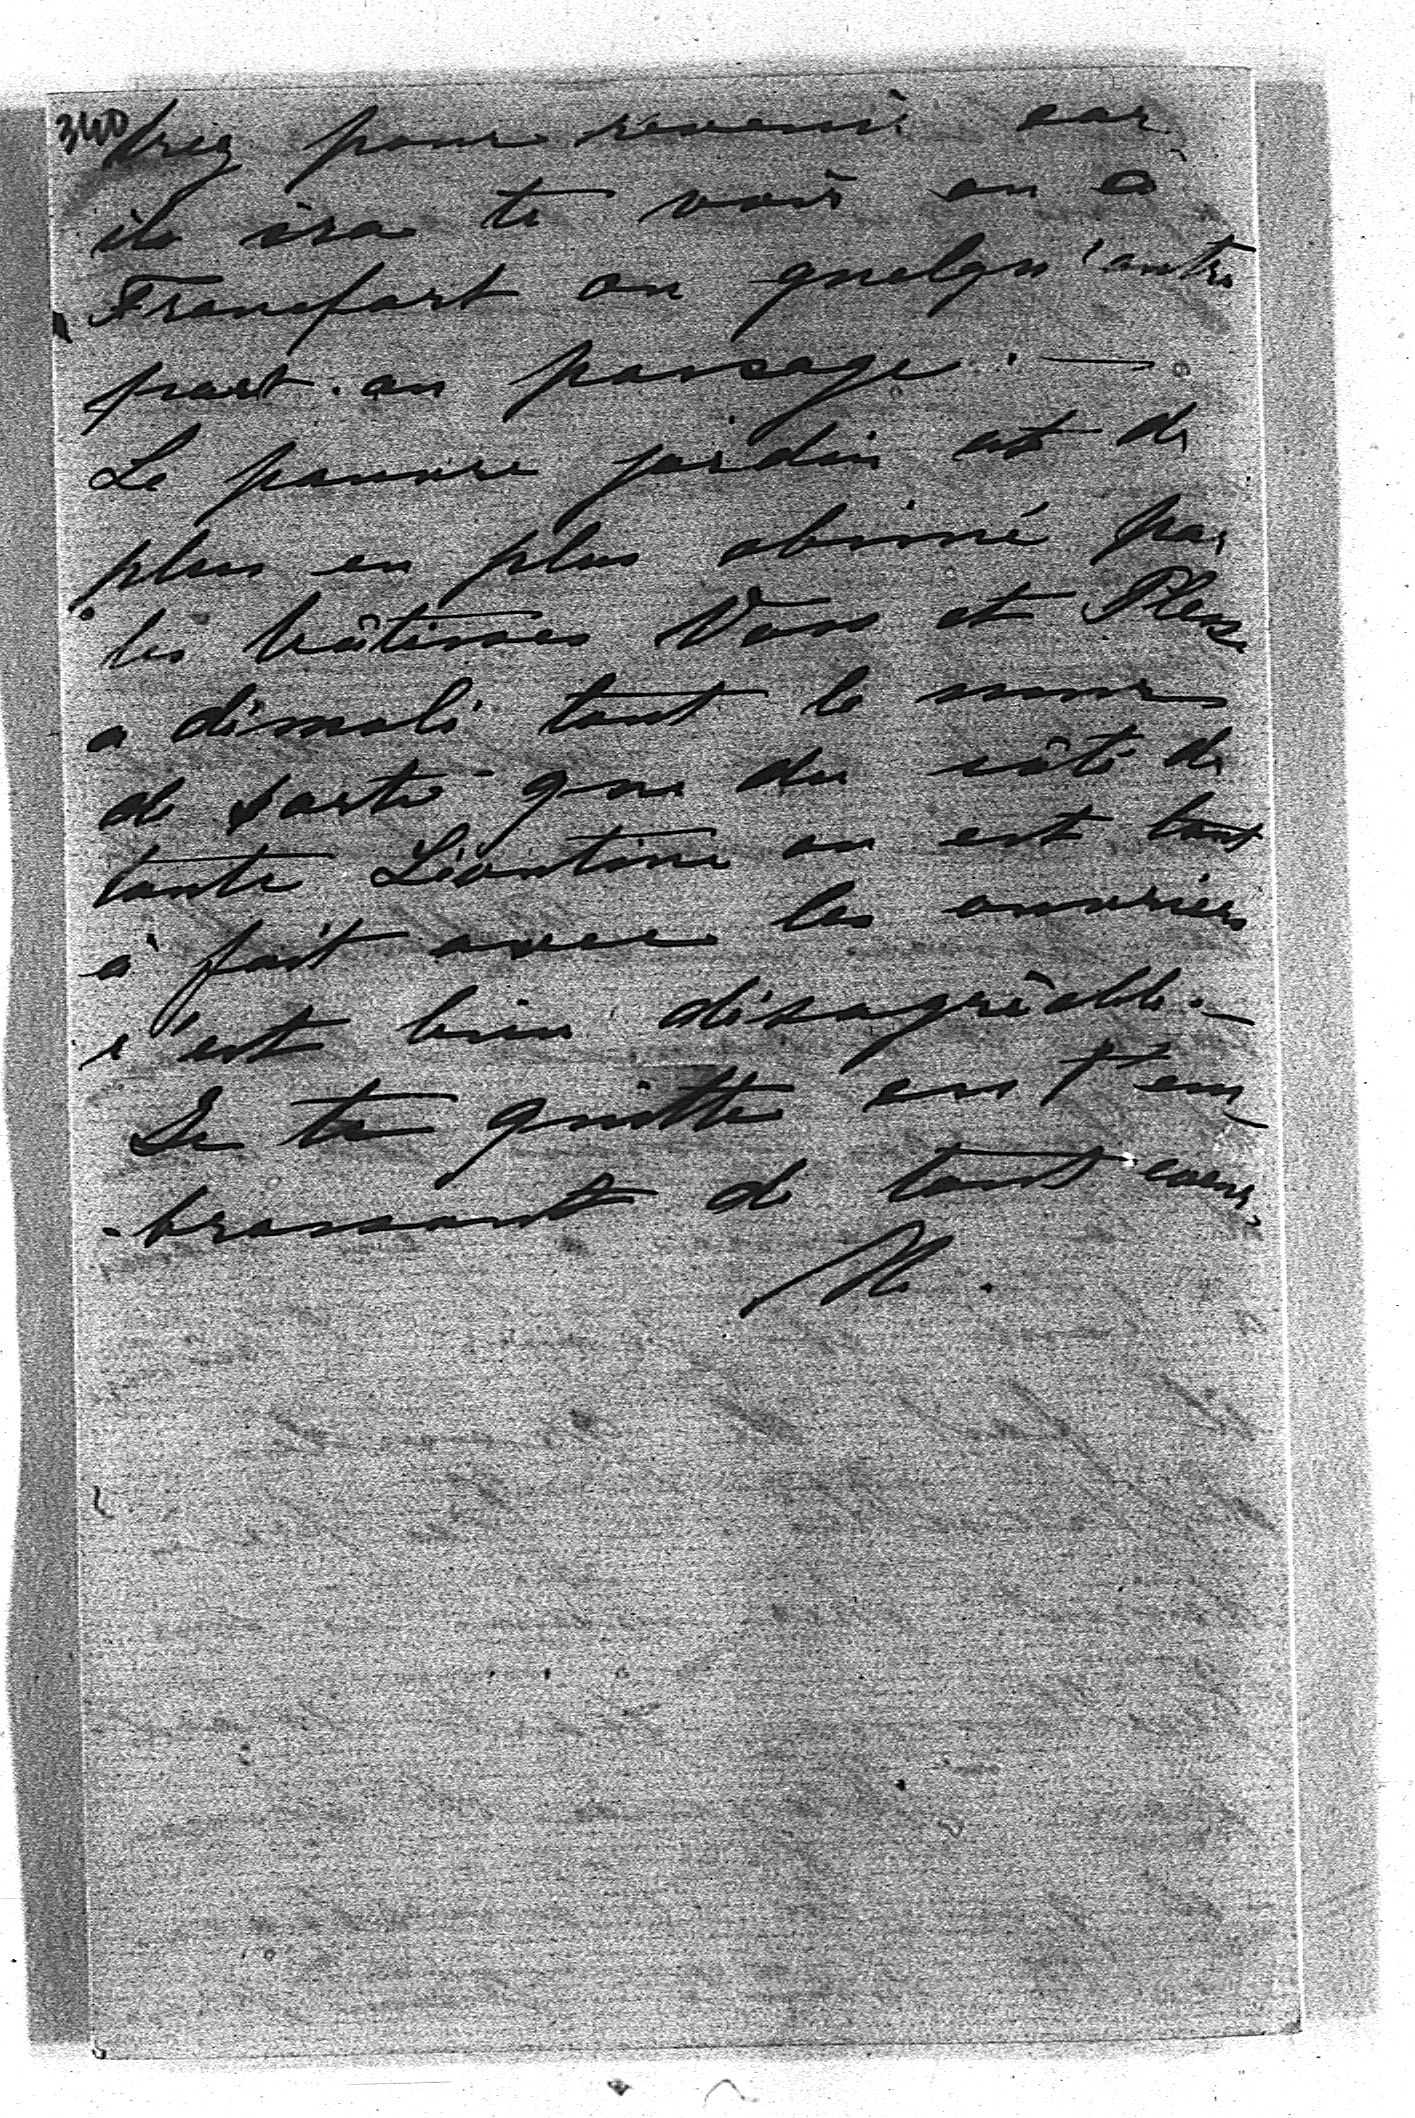 340
drez pour revenir car
il ira te voir ou à
Francfort ou quelqu'autre
part au passage. —
Le pauvre jardin est de
plus en plus abimé par
les bâtisses Vans et Pless
a démoli tout le mur
de sorte que du côté de
tante Léontine on est tout
à fait avec les ouvriers
c'est bien désagréable. —
Je te quitte en t'em
-brassant de tout coeur.
M.